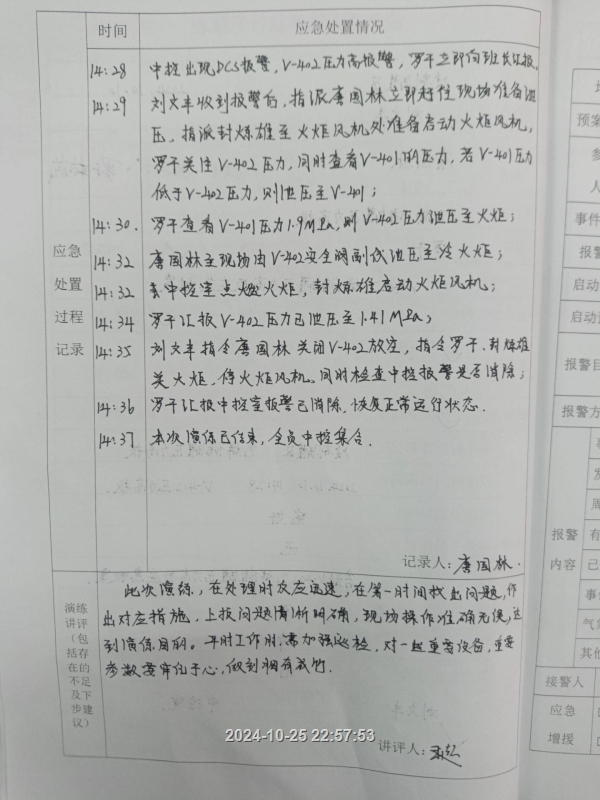 时间 应急处置情况
14:28 中控出现DCS报警,V-402压力高报警,罗干立即向班长汇报。
14:29 刘文丰收到报警后,指派唐国林立即赶往现场准备泄
压,指派封炼雄至火炬风机处准备启动火炬风机,
罗干关注V-402压力,同时查看V-401的压力,若V-401压力
低于V-402压力,则泄压至V-401;
14:30. 罗干查看V-401压力1.9MPa,则V-402压力泄压至火炬;
14:32 唐国林至现场由V-402安全阀副线泄压至冷火炬;
14:32 中控室点燃火炬,封炼雄启动火炬风机;
14:34 罗干汇报V-402压力已泄压至1.41MPa;
14:35 刘文丰指令唐国林关闭V-402放空,指令罗干、封炼雄
关火炬,停火炬风机。同时检查中控报警是否消除;
14:36 罗干汇报中控室报警已消除,恢复正常运行状态.
14:37 本次演练已结束,全员中控集合.
应急
处置
过程
记录
记录人:唐国林.
演练
讲评
(包
括存
在的
不足
及下
步建
议)
此次演练,在处理时反应迅速,在第一时间找出问题,作
出对应措施,上报问题清晰明确,现场操作准确无误,达
到演练目的。平时工作时,需加强巡检,对一些重要设备,重要
参数要牢记于心,做到胸有成竹.
讲评人:
2024-10-25 22:57:53
预案
参
人
事件
报警
启动
启动
报警目
报警方
报警
内容
事
发
周
有
已
事件
气象
其他
接警人
应急
增援